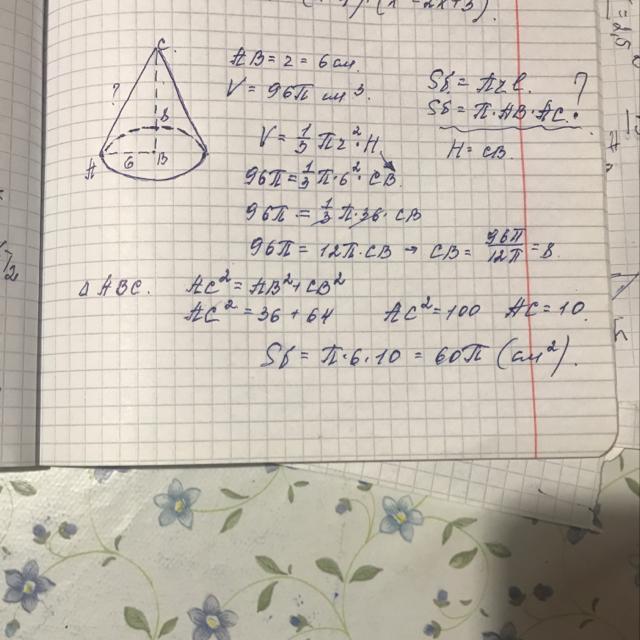 C
?
8
A 6 B
AB = r = 6 см.
V = 96π см³.
Sб = πrl. ?
Sб = π·AB·AC.
V = 1/3 πr²·H
H = CB.
96π = 1/3 π·6²·CB
96π = 1/3 π·36·CB
96π = 12π·CB → CB = 96π/12π = 8.
△ABC. AC² = AB² + CB²
AC² = 36 + 64 AC² = 100 AC = 10.
Sб = π·6·10 = 60π (см²).